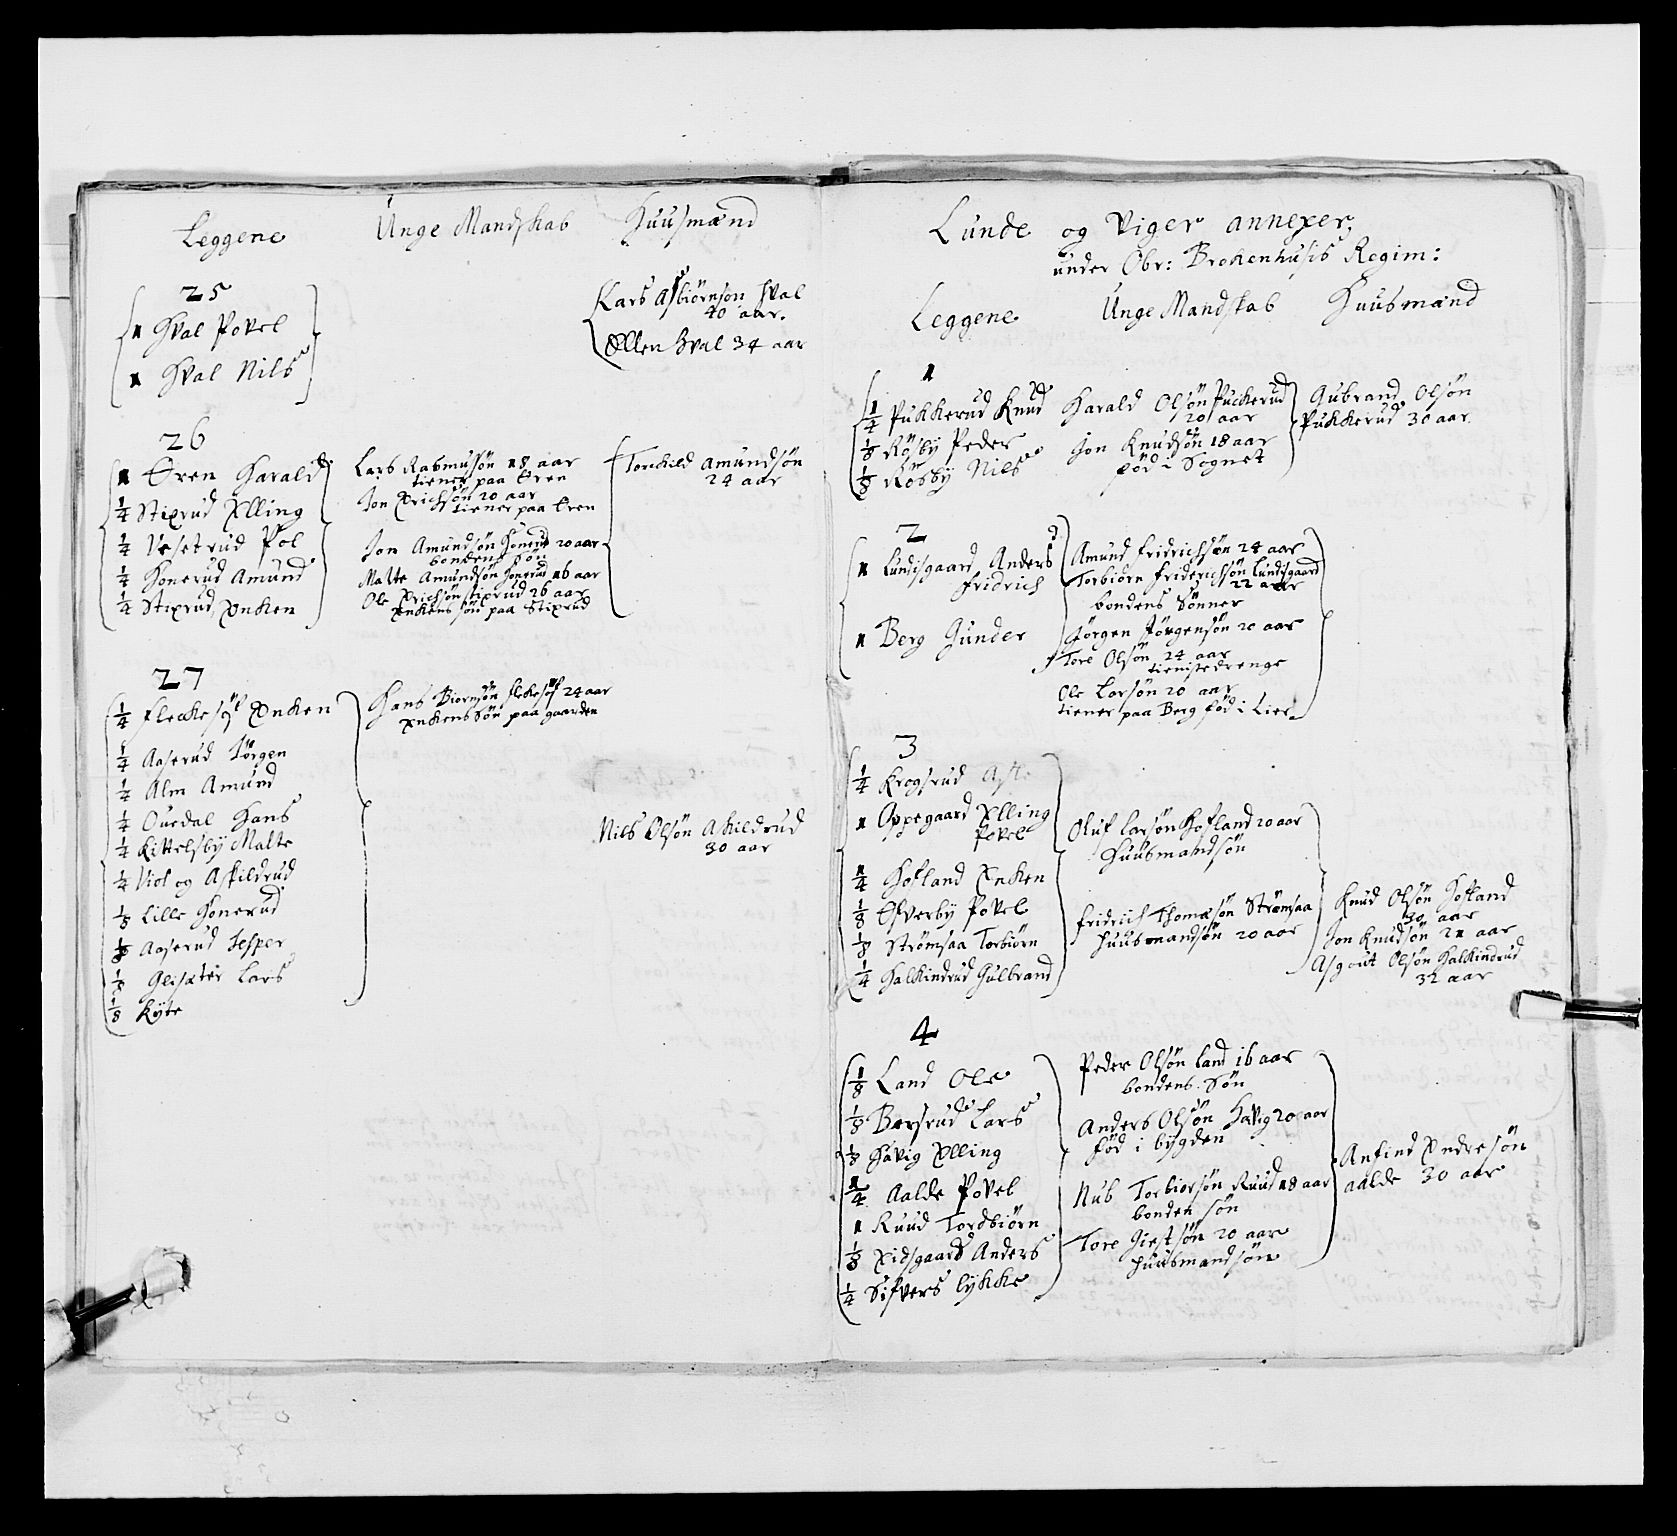 Leggene Unge Mandskab Huusmænd
25
1 Hval Povel
1 Hval Nils
Lars Asbiørnson Hval
40 aar.
Ellen Hval 34 aar
26
1 Eren Harald
1/4 Stixrud Elling
1/4 Vesetrud Pol
1/4 Honerud Amund
1/4 Stixrud Enken
Lars Rasmusøn 18 aar
tiener paa Eren
Jon Erichsøn 20 aar
tiener paa Eren
Jon Amundsøn Honerud 20 aar
bondens søn
Malte Amundsøn Honerud 16 aar
Ole Erichsøn Stixrud 26 aar
Enkens søn paa Stixrud
Torchild Amundsøn
24 aar
27
1/4 Enken
1/4 Aaserud Jørgen
1/4 Alm Amund
1/4 Ouedal Hans
1/4 Kittelsby Malte
1/4 Viol og Askildrud
1/8 Lille Honerud
1/8 Aaserud Jesper
1/8 Glisæter Lars
1/8 Kyte
Hans Biørnsøn 24 aar
Enkens søn paa gaarden
Nils Olsøn Askildrud
30 aar
Lunde og Viger annexer,
under Obr: Brokenhusis Regim:
Leggene Unge Mandskab Huusmænd
1
1/4 Pukkerud Knud
1/8 Røsby Peder
1/8 Røsby Nils
Harald Olsøn Puckerud
20 aar
Jon Knudsøn 18 aar
fød i Sognet
Gubrand Olsøn
Pukkerud 30 aar
2
1 Lundisgaard Anders
Fridrich
1 Berg Gunder
Amund Fridrichsøn 24 aar
Torbiørn Friderichsøn Lundisgaard
22 aar
bondens Sønner
Jørgen Jørgensøn 20 aar
Tore Olsøn 24 aar
tienistedrenge
Ole Larsøn 20 aar
tiener paa Berg fød i Lier
3
1/4 Krogsrud
1 Oppegaard Elling
Povel
1/4 Hofland Enken
1/8 Povel
1/8 Strømsaa Torbiørn
1/4 Halkindrud Gulbrand
Oluf Larsøn Hofland 20 aar
Huusmandsøn
Fridrich Thomæsøn Strømsaa
huusmandsøn 20 aar
Knud Olsøn Hofland
30 aar
Jon Knudsøn 21 aar
Asgout Olsøn Halkindrud
32 aar
4
1/8 Land Ole
1/8 Lars
1/8 Havig Elling
1/4 Aalde Povel
1 Ruud Tordbiørn
1/8 Eidsgaard Anders
1/4 Sifvers lykke
Peder Olsøn Land 16 aar
bondens Søn
Anders Olsøn Havig 20 aar
fød i bygden
Nub Torbiorsøn Ruud 18 aar
bonden søn
Tore Giestsøn 20 aar
huusmandsøn
Anfind Endresøn
aalde 30 aar